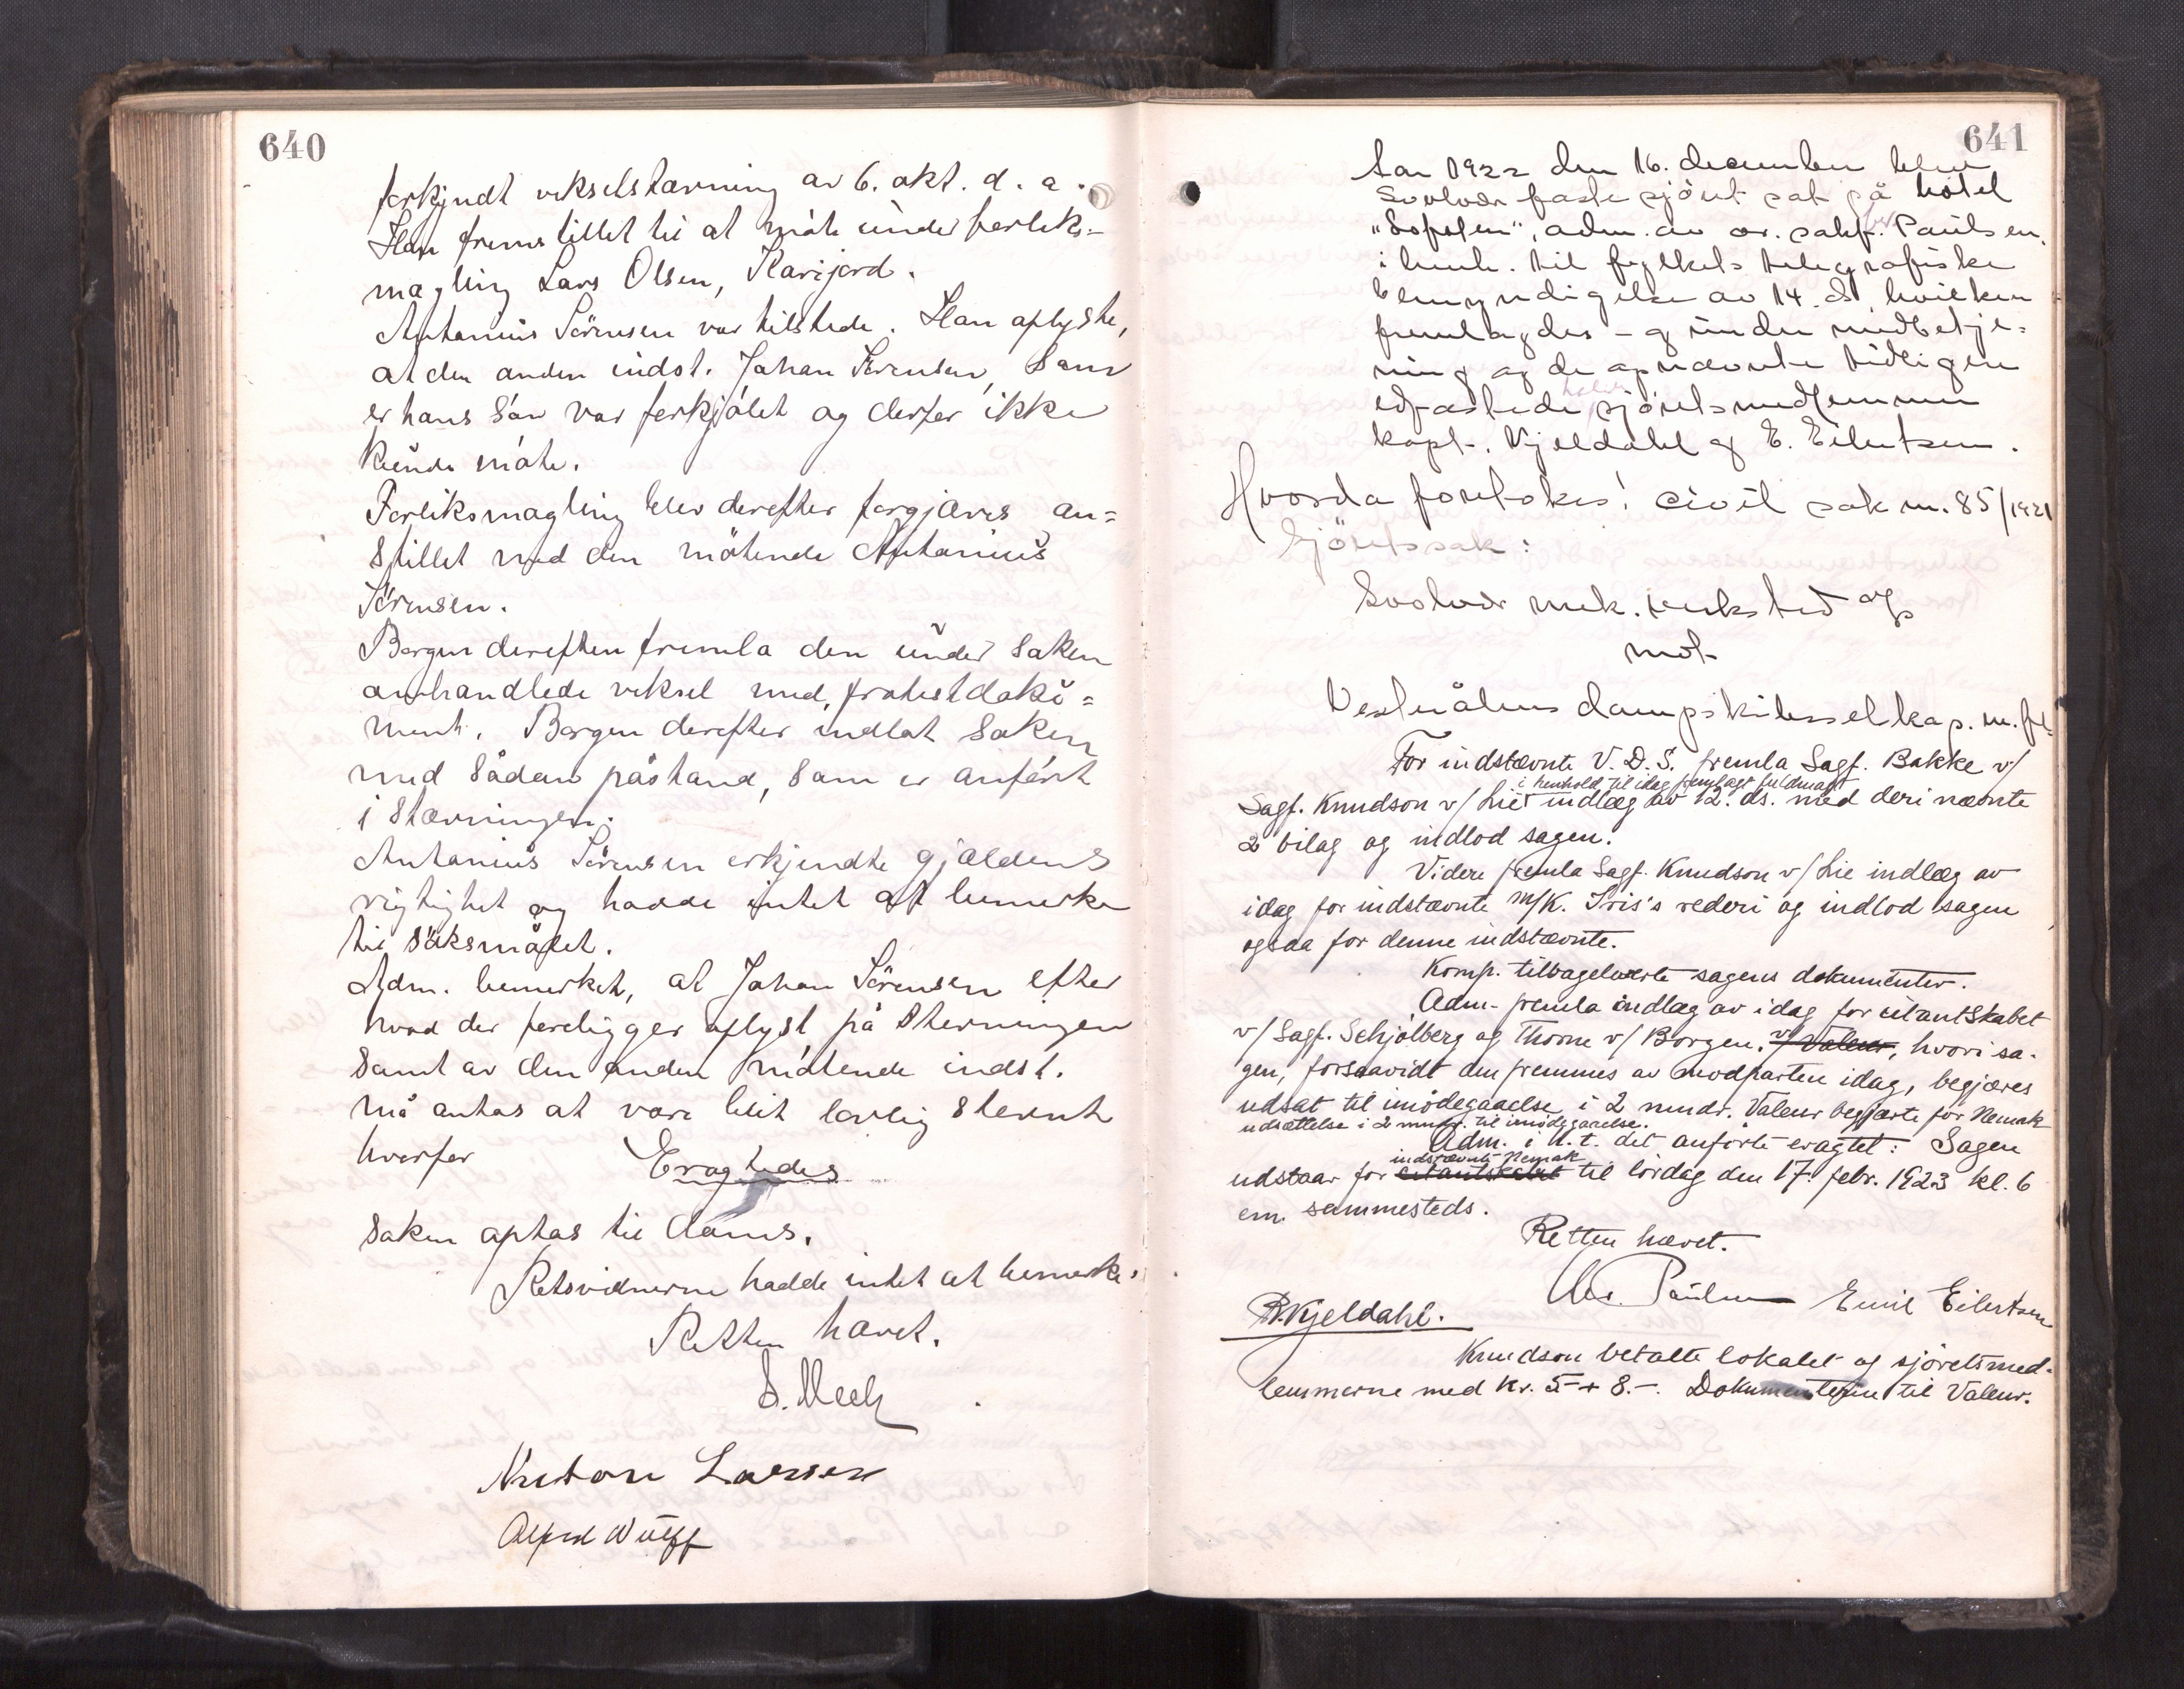 640
forkyndt vekselstævning av 6. okt. d. a.
Han fremstillet til at møte under forliks-
mægling Lars Olsen, Karijord.
Antonius Sörensen var tilstede. Han oplyste,
at den anden indst. Johan Sörensen, som
er hans sön var forkjölet og derfor ikke
kunde möte.
Forliksmægling blev derefter forgjæves an-
stillet med den mötende Antonius
Sörensen.
Borgen derefter fremla den under saken
omhandlede veksel med protestdoku-
ment. Borgen derefter indlot saken
med sådan påstand, som er anfört
i stævningen.
Antonius Sörensen erkjendte gjældens
rigtighet og hadde intet at bemerke
til söksmålet.
Adm. bemerket, at Johan Sörensen efter
hvad der foreligger oplyst på stevningen
samt av den anden mötende indst.
må antas at være blit lovlig stevnt
hvorfor Eragtedes
saken optas til doms.
Retsvidnerne hadde intet at bemerke.
Retten hævet.
Anton Larsen
Alfred Wulff
641
Aar 1922 den 16. december blev
Svolvær faste sjöret sat på hotel
"Lofoten", adm. av or. sakf. Paulsen,
i henh. til fylkets telegrafiske
bemyndigelse av 14. ds, hvilken
fremlagdes - og under medbetje-
ning av de opnævnte tidligere
edfæstede sjöretsmedlemmer
kapt. Kjeldahl og E. Eilertsen.
Hvorda foretokes: civil sak nr. 85/1921
Sjöretssak:
Svolvær mek. verksted
mot
Vesteraalens dampskibsselskap. m. fl.
For indstævnte V. D. S. fremla Sagf. Bakke v/
i henhold til idag fremlagt fuldmagt
Sagf. Knudson v/ Lie indlæg av 12. ds. med deri nævnte
2 bilag og indlod sagen.
Videre fremla Sagf. Knudson v/ Lie indlæg av
idag for indstævnte M/K. Iris's rederi og indlod sagen
ogsaa for denne indstævnte.
Komp. tilbageleverte sagens dokumenter.
Adm. fremla indlæg av idag for citantskabet
v/ Sagf. Schjølberg og Thorne v/ Borgen, v/ Valeur, hvori sa-
gen, forsaavidt den fremmes av modparten idag, begjæres
udsat til imødegaaelse i 2 mndr. Valeur begjærte for Nemak
udsættelse i 2 mndr. til imødegaaelse.
Adm. i h. t. det anførte eragtet: Sagen
indstævnte Nemak
udstaar for citantskabet til lørdag den 17. febr. 1923 kl. 6
em. sammesteds.
Retten hævet.
Chr. Paulsen Emil Eilertsen
R. Kjeldahl.
Knudson betalte lokalet og sjøretsmed-
lemmerne med kr. 5.- + 8.-. Dokumenterne til Valeur.